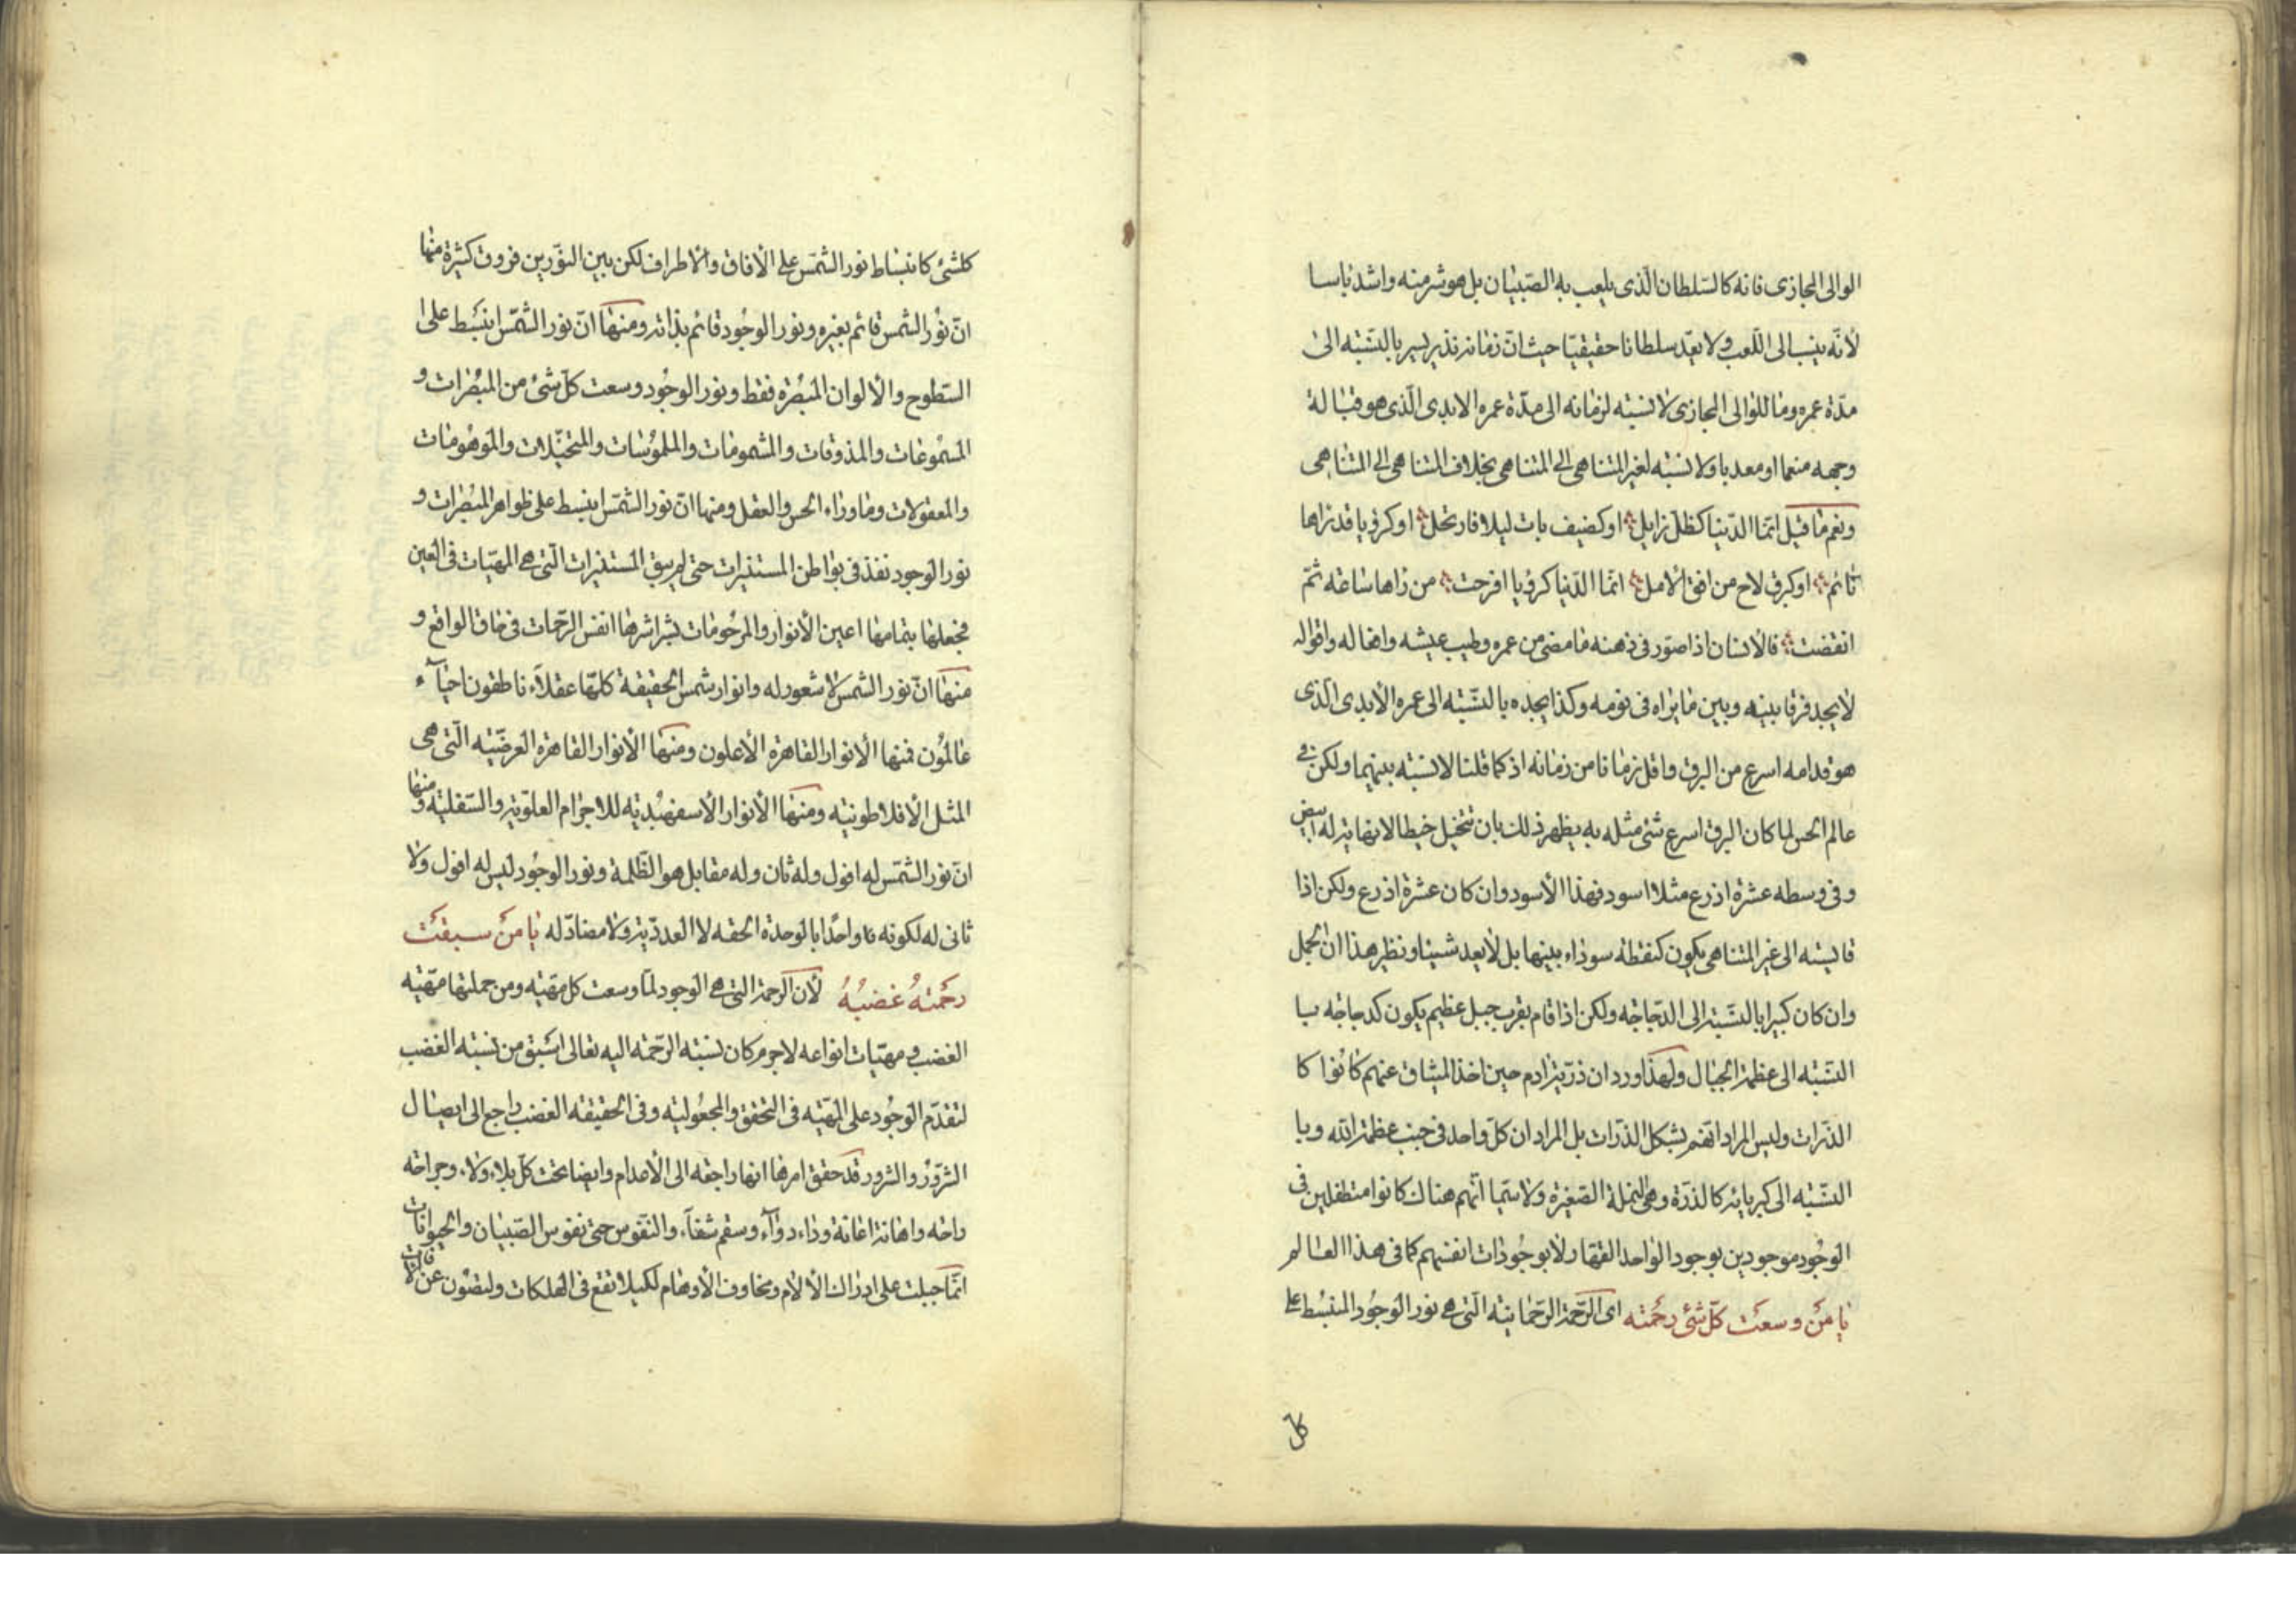 الوالى المجازى فانه كالسّلطان الّذى يلعب به الصّبيان بل هو شر منه واشد باسا
لأنّه ينسب الى اللّعب ولا يعدّ سلطانا حقيقيّا حيث انّ زمانه نذر يسير بالنّسبه الى
مدّة عمره وما للوالى المجازى لا نسبته لزمانه الى مدّة عمره الابدى الّذى هو قبالة
وجهه منعما او معذبا ولا نسبته لغير المتناهى الى المتناهى بخلاف المتناهى الى المتناهى
ونعم ما قيل انّما الدّنيا كظلّ زايل او كضيف بات ليلا فارتحل او كرؤيا قد نراها
نائم او كبرق لاح من افق الامل انّما الدّنيا كرؤيا افرحت من راها ساعة ثمّ
انقضت فالانسان اذا صوّر فى ذهنه ما مضى من عمره وطيب عيشه وافعاله واقواله
لا يجد فرقا بينه وبين ما يراه فى نومه وكذا يجده بالنّسبه الى عمره الأبدى الّذى
هو قدامه اسرع من البرق واقل زمانا من زمانه اذ كما قلنا لا نسبته بينهما ولكن فى
عالم الحس لما كان البرق اسرع شئ مثله به يظهر ذلك بان تتخيل خيطا لا نهاية له ابيض
وفى وسطه عشرة اذرع مثلا اسود فهذا الأسود وان كان عشرة اذرع ولكن اذا
قايسته الى غير المتناهى يكون كنقطة سوداء بينها بل لا يعد شيئا ونظير هذا ان الجمل
وان كان كبيرا بالنسّبة الى الدّجاجه ولكن اذا قام بقرب جبل عظيم يكون كدجاجه سيا
النسّبه الى عظمة الجبال ولهذا ورد ان ذرّية ادم حين اخذ الميثاق عنهم كانوا كا
الذّرات وليس المراد انّهم بشكل الذّرات بل المراد ان كلّ واحد فى جنب عظمة الله وبا
النسّبه الى كبريائه كالذرّة وهى النملة الصّغيرة ولا سيّما انّهم هناك كانوا متطفلين فى
الوجود موجودين بوجود الواحد القهار لا بوجودات انفسهم كما فى هذا العالم
يا من وسعت كلّ شئ رحمته اى الرّحمة الرّحمانيته الّتى هى نور الوجود المنبسط على
كل
كلشئ كانبساط نور الشّمس على الأفاق والاطراف لكن بين النوّرين فروق كثيرة منها
انّ نور الشمس قائم بغيره ونور الوجود قائم بذاته ومنها انّ نور الشّمس انبسط على ا
السّطوح والألوان المبصرة فقط ونور الوجود وسعت كلّ شئ من المبصرات و
المسموعات والمذوقات والمشمومات والملموسات والمتخيّلات والموهومات
والمعقولات وما وراء الحس والعقل ومنها انّ نور الشّمس انبسط على ظواهر المبصرات و
نور الوجود نفذ فى بواطن المستنيرات حتى لم يبق المستنيرات الّتى هى المهيّات فى العين
فجعلها بتمامها اعين الأنوار والمرحومات بشراشرها انفس الرّحمات فى حاق الواقع و
منها انّ نور الشمس لا شعور له وانوار شمس الحقيقة كلّها عقلاء ناطقون احياء
عالمون فمنها الأنوار القاهرة الأعلون ومنها الأنوار القاهرة العرضيّه الّتى هى
المثل الأفلاطونيّه ومنها الأنوار الأسفهبديّه للاجرام العلويّه والسّفليّه ومنها
انّ نور الشّمس له افول وله ثان وله مقابل هو الظّلمة ونور الوجود ليس له افول ولا
ثانى له لكونه واحدًا بالوحدة الحقه لا العدديّة ولا مضادّ له يا من سبقت
رحمته غضبه لأن الرحمة التى هى الوجود لمّا وسعت كل مهيّه ومن جملتها مهيّه
الغضب ومهيّات انواعه لاجرم كان نسبته الرّحمه اليه تعالى اسبق من نسبته الغضب
لتقدّم الوجود على المهيّه فى التحقق والمجعوليّه وفى الحقيقه الغضب راجع الى ايصال
الشرّور والشرور قد حقق امرها انها راجعه الى الأعدام وايضا تحت كلّ بلاء ولاء وجراحه
راحه واهانة اعانة وداء دواء وسقم شفاء والنّفوس حتى نفوس الصّبيان والحيوانات
انّما جبلت على ادراك الألام ومخاوف الأوهام لكيلا تقع فى الهلكات ولتصون عن الأفات